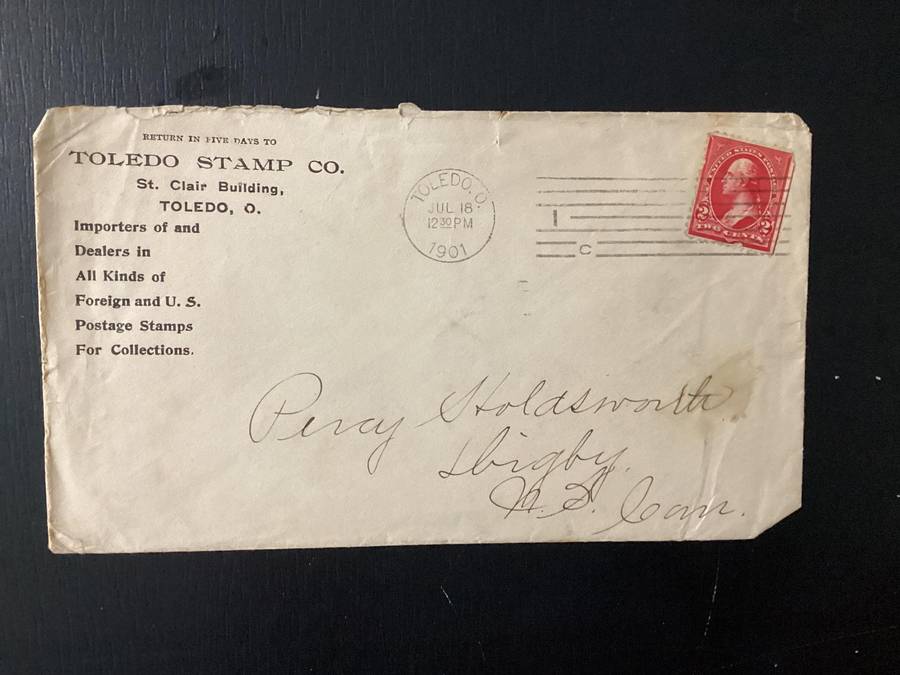 RETURN IN FIVE DAYS TO
TOLEDO STAMP CO.
St. Clair Building,
TOLEDO, O.
Importers of and
Dealers in
All Kinds of
Foreign and U. S.
Postage Stamps
For Collections.
TOLEDO, O.
JUL 18
12 30 PM
1901
1
C
UNITED STATES POSTAGE
2 2
TWO CENTS
Percy Holdsworth
Digby
N. S. Can.